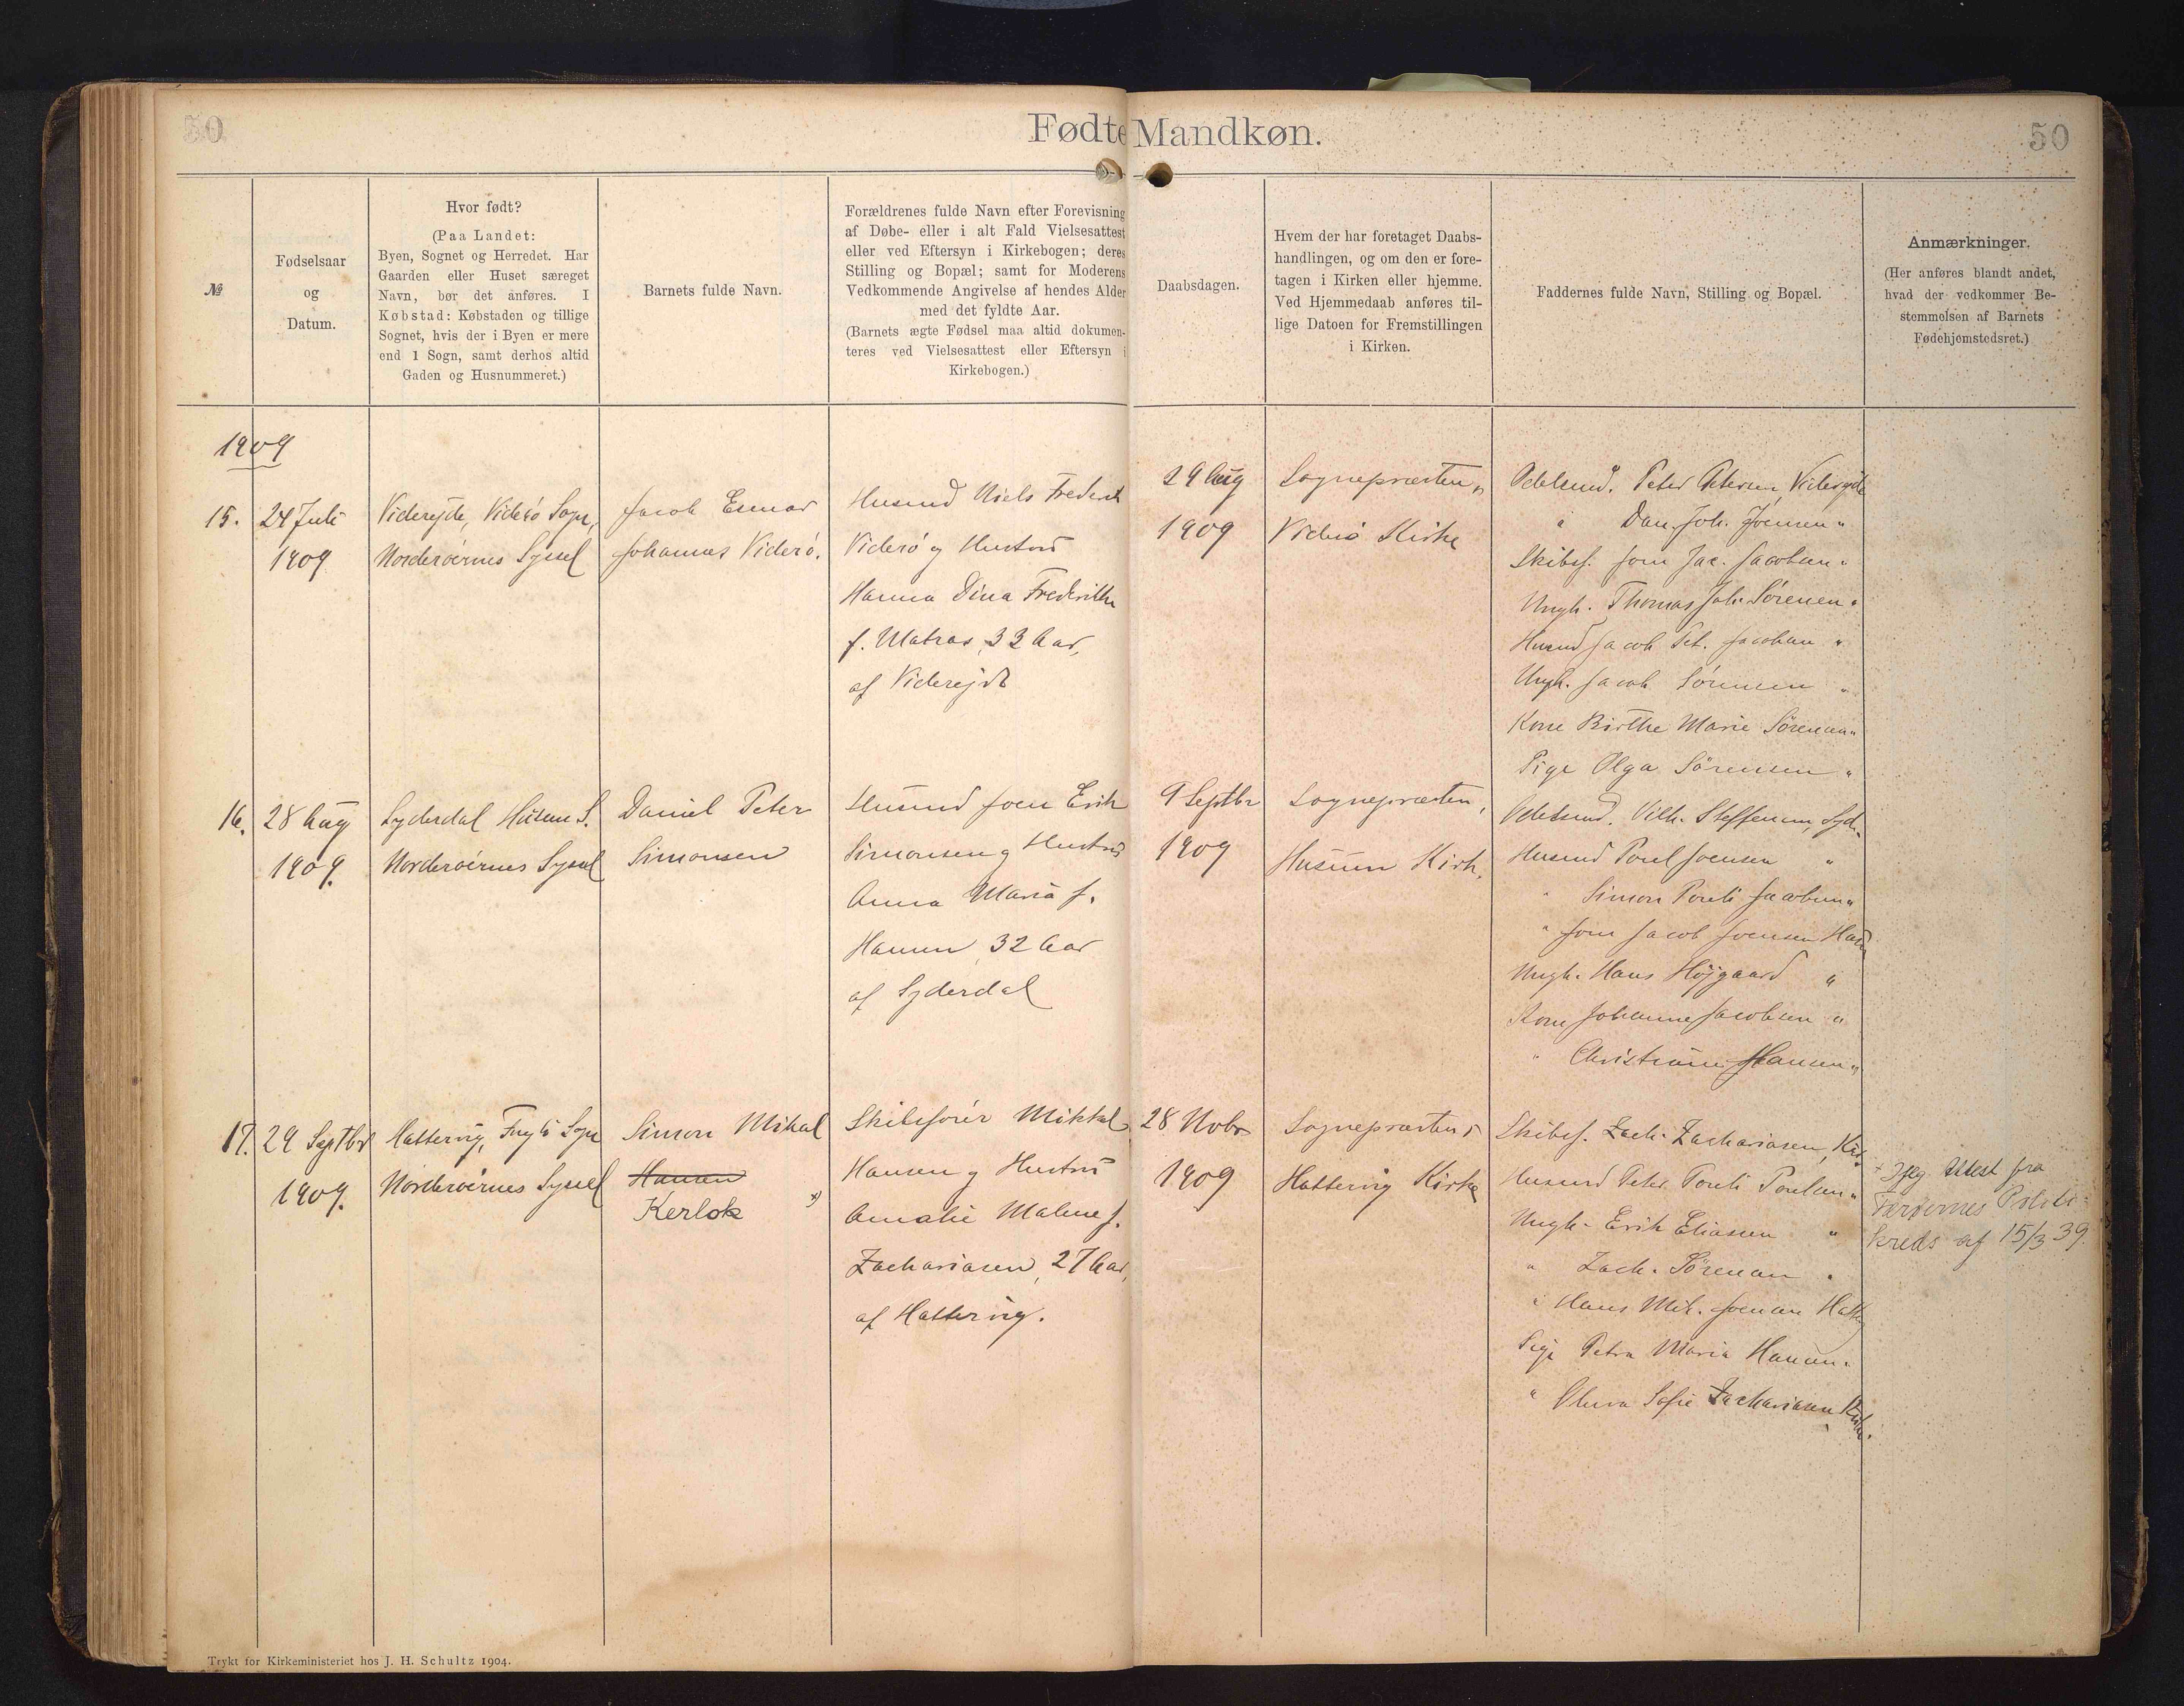 50
Fødte Mandkøn.
50
№
Fødselsaar
og
Datum.
Hvor født?
(Paa Landet:
Byen, Sognet og Herredet. Har
Gaarden eller Huset særeget
Navn, bør det anføres. I
Købstad: Købstaden og tillige
Sognet, hvis der i Byen er mere
end 1 Sogn, samt derhos altid
Gaden og Husnummeret.)
Barnets fulde Navn.
Forældrenes fulde Navn efter Forevisning
af Døbe- eller i alt Fald Vielsesattest
eller ved Eftersyn i Kirkebogen; deres
Stilling og Bopæl; samt for Moderens
Vedkommende Angivelse af hendes Alder
med det fyldte Aar.
(Barnets ægte Fødsel maa altid dokumen-
teres ved Vielsesattest eller Eftersyn i
Kirkebogen.)
Daabsdagen.
Hvem der har foretaget Daabs-
handlingen, og om den er fore-
tagen i Kirken eller hjemme.
Ved Hjemmedaab anføres til-
lige Datoen for Fremstillingen
i Kirken.
Faddernes fulde Navn, Stilling og Bopæl.
Anmærkninger.
(Her anføres blandt andet,
hvad der vedkommer Be-
stemmelsen af Barnets
Fødehjemstedsret.)
1909
15.
24 Juli
1909
Viderejde, Viderø Sogn,
Norderøernes Syssel
Jacob Esmar
Johannes Viderø.
Husmd Niels Frederik
Viderø og Hustru
Hanna Dina Frederikke
f. Matras, 33 Aar,
af Viderejde
29 Aug
1909
Sognepræsten,
Viderø Kirke
Odelsmd. Peter Petersen, Viderejde
" Dan. Joh. Joensen "
Skibsf. Joen Jac. Jacobsen "
Ungk. Thomas Joh. Sørensen "
Husmd Jacob Pet. Jacobsen "
Ungk. Jacob Sørensen "
Kone Birthe Marie Sørensen "
Pige Olga Sørensen "
16.
28 Aug
1909.
Syderdal Husum S.
Norderøernes Syssel
Daniel Peter
Simonsen
Husmd Joen Erik
Simonsen og Hustru
Anna Maria f.
Hansen, 32 Aar
af Syderdal
9 Septbr
1909
Sognepræsten,
Husum Kirk.
Odelsmd. Vilh. Steffensen, Syd.
Husmd Poul Joensen "
" Simon Pouli Jacobsen "
" Joen Jacob Joensen Husm
Ungk. Hans Højgaard "
Kone Johanne Jacobsen "
" Christiane Hansen "
17.
29 Septbr
1909.
Hattervig, Fuglø Sogn
Norderøernes Syssel
Simon Mikal
Hansen
Kerlok x)
Skibsfører Mikkal
Hansen og Hustru
Amalie Malene f.
Zachariasen, 27 Aar,
af Hattervig.
28 Novbr
1909
Sognepræsten,
Hattervig Kirke
Skibsf. Zach. Zachariasen, Kir.
Husmd Peter Pouli Poulsen "
Ungk. Erik Eliasen "
" Zach. Sørensen "
" Hans Mik. Joensen Hatt
Pige Petra Maria Hansen "
" Sofie Zachariasen Kirk.
Attest fra
Færøernes Politi-
kreds af 15/3 39.
Trykt for Kirkeministeriet hos J. H. Schultz 1904.